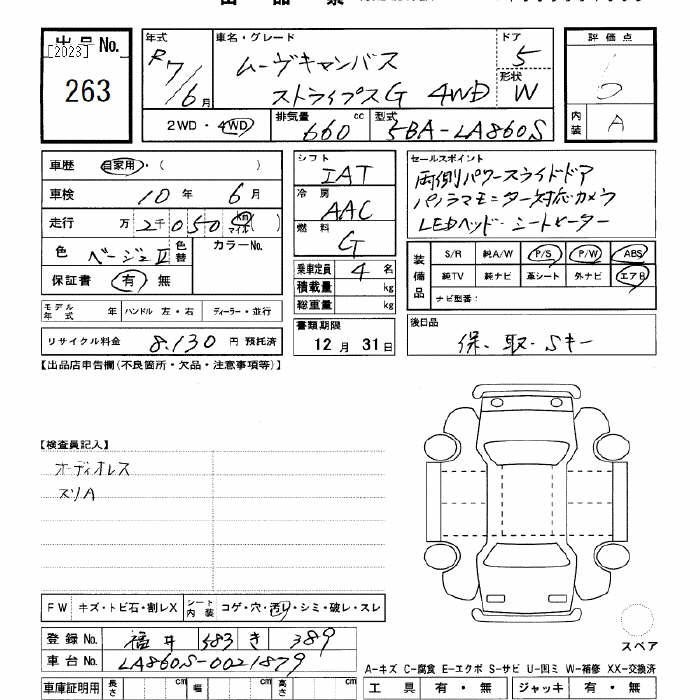 出品No.
[2023]
263
年式
R7/6月
車名・グレード
ムーヴキャンバス
ストライプスG 4WD
ドア
5
形状
W
評価点
内装
A
2WD・4WD
排気量
660 cc
型式
5BA-LA860S
車歴 自家用・( )
車検 10年 6月
走行 万 2千050 km マイル ( )
色 ベージュII 色替 カラーNo.
保証書 有 無
モデル年式 年 ハンドル 左・右 ディーラー・並行
リサイクル料金 8,130 円 預託済
シフト
IAT
冷房
AAC
燃料
G
乗車定員 4 名
積載量 kg
総重量 kg
書類期限
12月 31日
セールスポイント
両側パワースライドドア
パノラマモニター対応カメラ
LEDヘッド・シートヒーター
装備品
S/R 純A/W P/S P/W ABS
純TV 純ナビ 革シート 外ナビ エアB
ナビ型番:
後日品
保、取、Sキー
【出品店申告欄(不良箇所・欠品・注意事項等)】
【検査員記入】
オーディオレス
スリA
FW キズ・トビ石・割レX シート内装 コゲ・穴・汚レ・シミ・破レ・スレ
登録No. 福井 583 き 389
車台No. LA860S-0021879
車庫証明用 長さ cm 幅 cm 高さ cm
スペア
A-キズ C-腐食 E-エクボ S-サビ U-凹ミ W-補修 XX-交換済
工具 有・無 ジャッキ 有・無